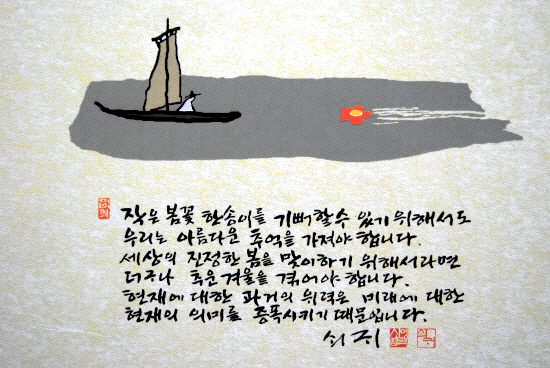 작은 봄꽃 한송이를 기뻐할 수 있기 위해서도
우리는 아름다운 추억을 가져야 합니다.
세상의 진정한 봄을 맞이하기 위해서라면
더구나 추운 겨울을 겪어야 합니다.
현재에 대한 과거의 위력은 미래에 대한
현재의 의미를 증폭시키기 때문입니다.
쇠귀